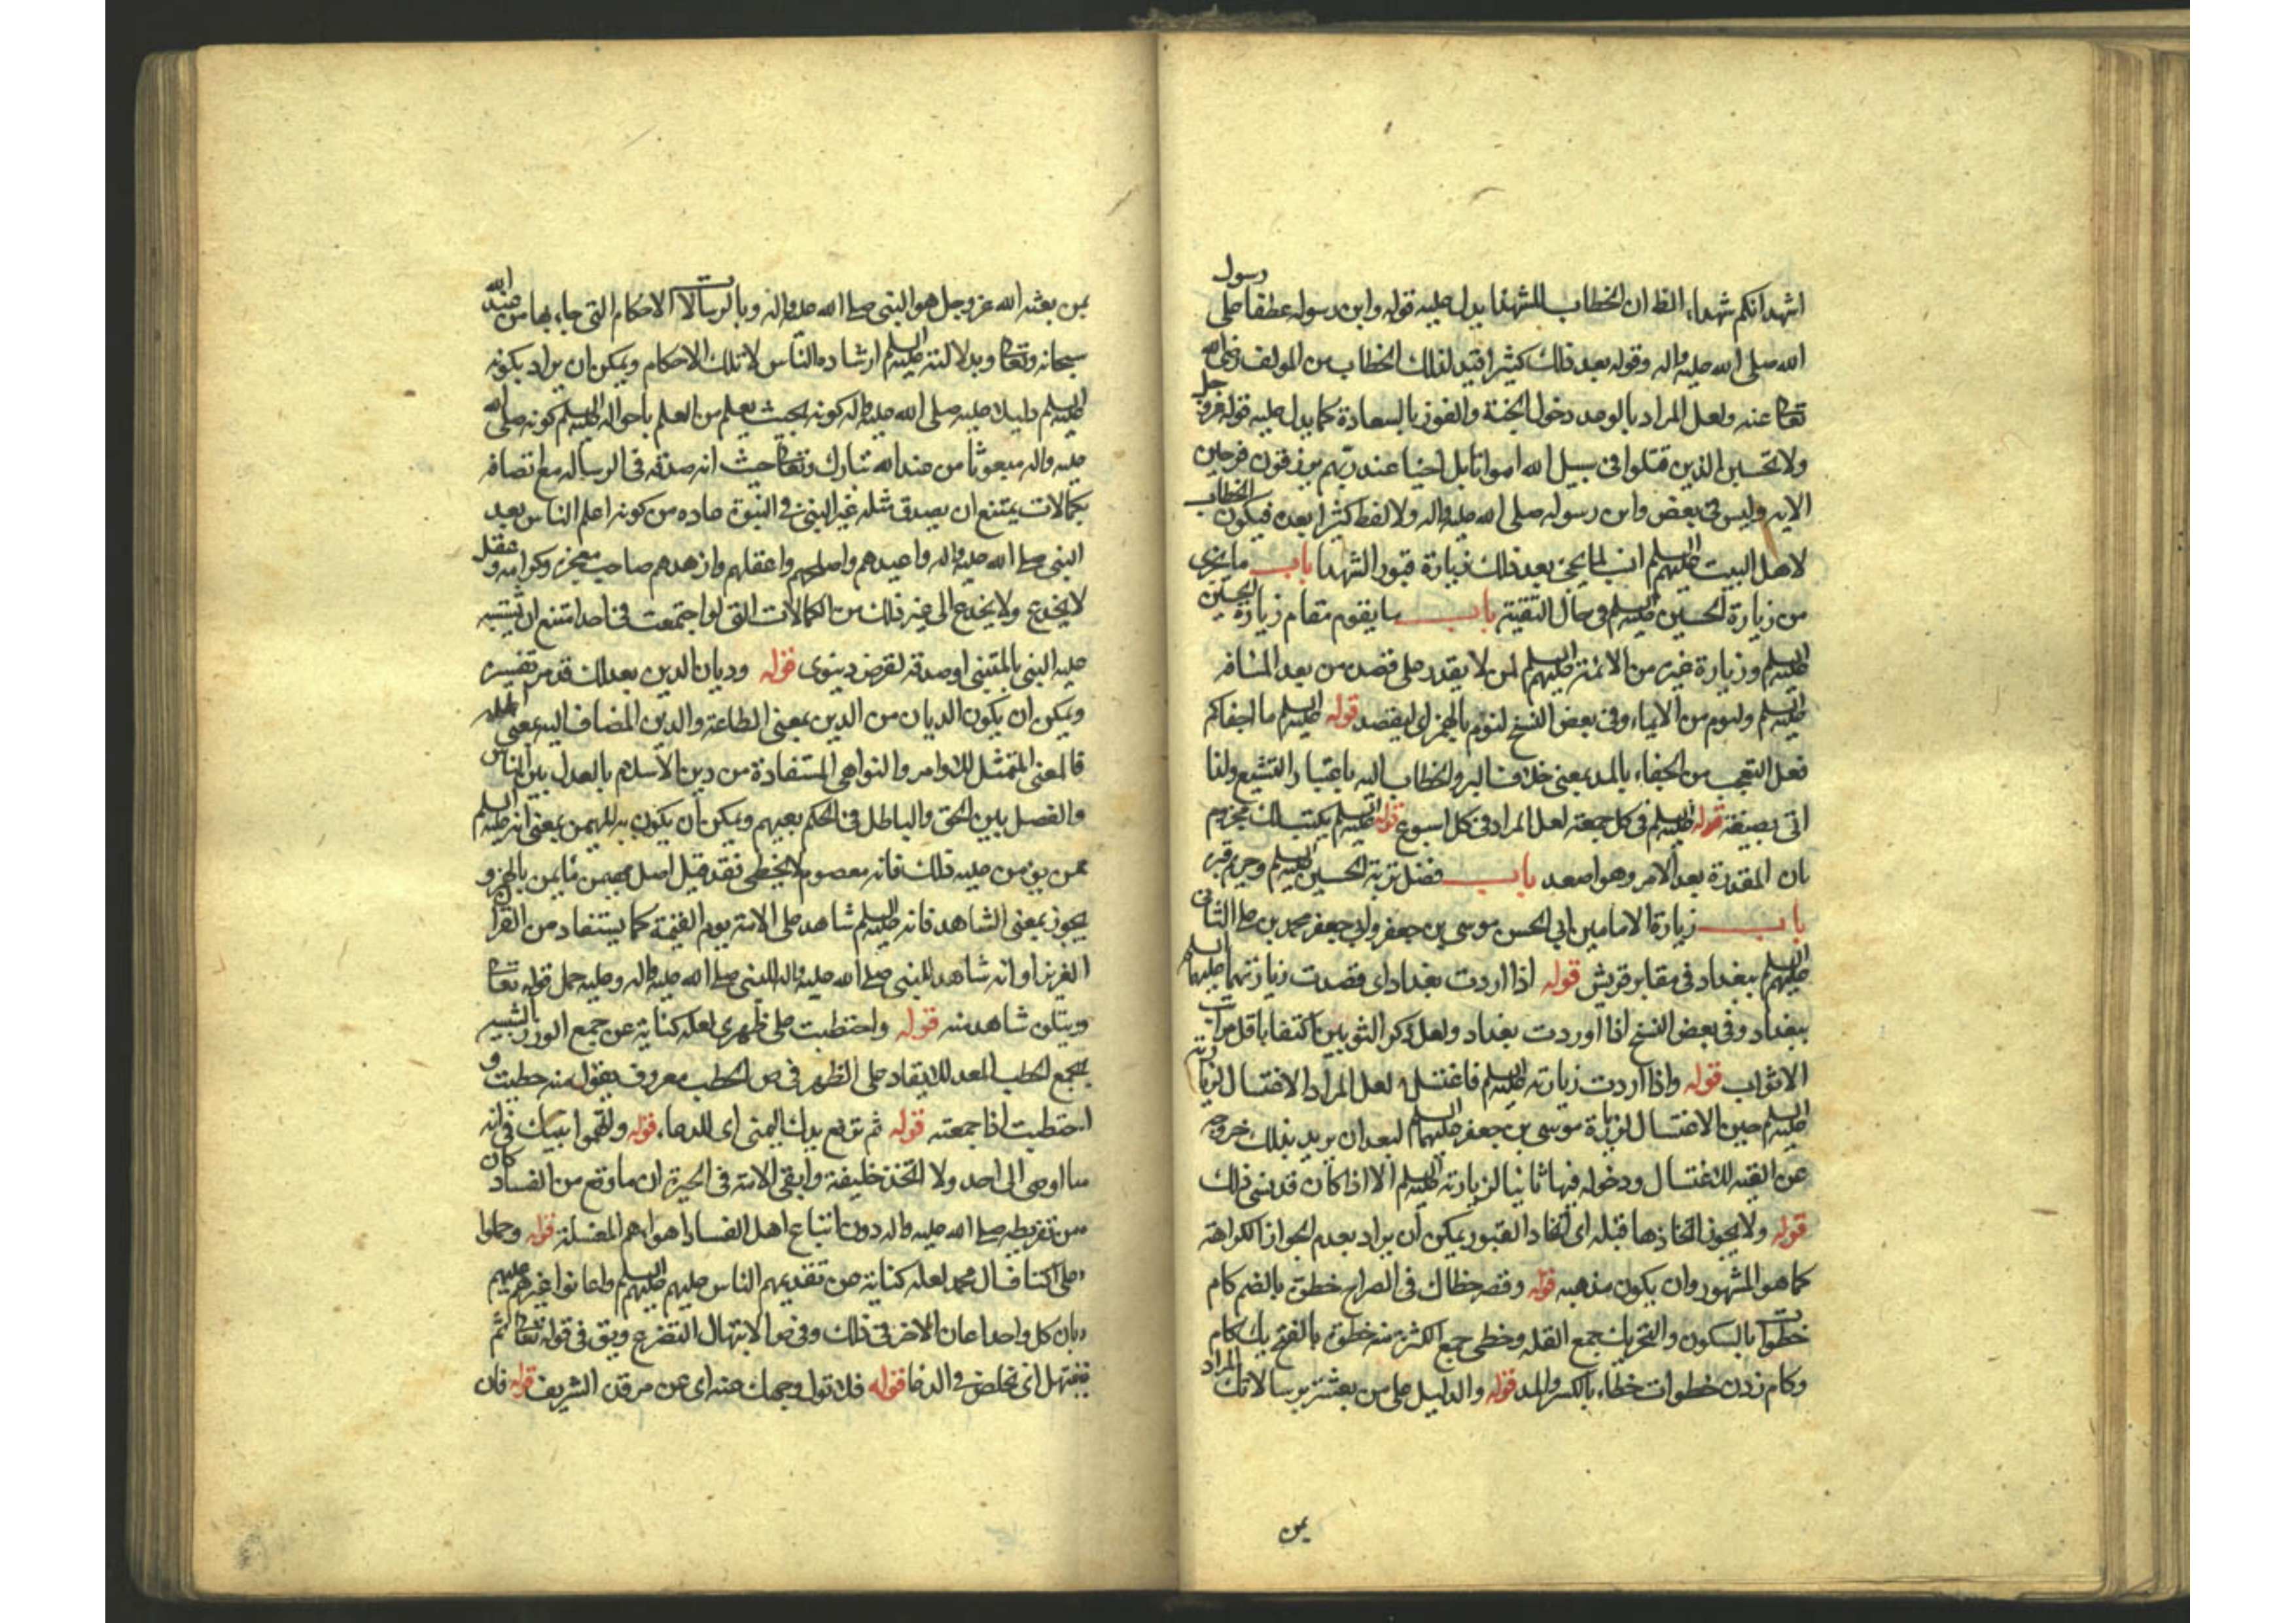 اشهد انكم شهداء الظ ان الخطاب للشهدا يدل عليه قوله وابن رسوله عطفا على رسول
الله صلى الله عليه واله وقوله بعد ذلك كثيرا فتد لذلك الخطاب من المولف رضى الله
تعالى عنه ولعل المراد بالوعد دخول الجنة والفوز بالسعادة كما يدل عليه قوله عز وجل
ولا تحسبن الذين قتلوا فى سبيل الله امواتا بل احيا عند ربهم يرزقون فرحين
الايه وليس فى بعض وابن رسوله صلى الله عليه واله ولا لفظ كثيرا بعده فيكون الخطاب
لاهل البيت عليهم السلم انسب لما يجئ بعد ذلك زيارة قبور الشهدا باب ما يجزى
من زيارة الحسين عليه السلم فى حال التقية باب ما يقوم مقام زيارة الحسين
عليه السلم وزيارة غيره من الائمة عليهم السلم لمن لا يقدر على قصده من بعد المسافه
عليه السلم وليوم من الايماء وفى بعض النسخ لنوم بالهمز اى ليقصد قوله عليه السلم ما اجفاكم
فعل التعجب من الجفاء بالمد بمعنى خلاف البر والخطاب اليه باعتبار التشيع ولذا
اتى بصيغة قوله عليه السلم فى كل جمعة لعل المراد فى كل اسبوع قوله عليه السلم يكتب لك مجزوم
بان المقدرة بعد الامر وهو اصعد باب فضل تربة الحسين عليه السلم وحريم قبره
باب زيارة الامامين ابى الحسن موسى بن جعفر وابى جعفر محمد بن على الثانى
عليهم السلم ببغداد فى مقابر قريش قوله اذا اردت بغداد اى قصدت زيارتهما عليهما السلم
ببغداد وفى بعض النسخ اذا اوردت بغداد ولعل ذكر الثوبين اكتفا باقل مراتب
الاثواب قوله واذا اردت زيارته عليه السلم فاغتسل لعل المراد الاغتسال لزيارته
عليه السلم حين الاغتسال لزيارة موسى بن جعفر عليهما السلم لبعد ان يريد بذلك خروجه
عن القبه للاغتسال ودخوله فيها ثانيا لزيارته عليه السلم الا اذا كان قد نسى ذلك
قوله ولا يجوز اتخاذها قبله اى اتخاذ القبور يمكن ان يراد بعدم الجواز الكراهة
كما هو المشهور وان يكون مذهبه قوله وقصر خطاك فى الصراح خطوة بالضم كام
خطوات بالسكون والتحريك جمع القله وخطى جمع الكثرة منه خطوة بالفتح يك كام
وكام زدن خطوات خطاء بالكسر والمد قوله والدليل على من بعثته برسالاتك المراد
بمن
بمن بعثه الله عز وجل هو النبى صلى الله عليه واله وبالرسالات الاحكام التى جاء بها من عند الله
سبحانه وتعالى وبدلالته عليه السلم ارشاده الناس لا تلك الاحكام ويمكن ان يراد بكونه
عليه السلم دليلا عليه صلى الله عليه واله كونه بحيث يعلم من العلم باحواله عليه السلم كونه صلى الله
عليه واله مبعوثا من عند الله تبارك وتعالى حيث انه صدقه فى الرساله مع اتصافه
بكمالات يمتنع ان يصدق مثله غير النبى فى النبوة عاده من كونه اعلم الناس بعد
النبى صلى الله عليه واله واعبدهم واصلحهم واعقلهم وازهدهم صاحب معجزه وكرامه وعقل
لا يخدع ولا يخدع الى غير ذلك من الكمالات التى لو اجتمعت فى احد امتنع ان يشتبه
عليه النبى بالمتنبى او صدقه لغرض دينوى قوله وديان الدين بعدلك قد مر تفسيره
ويمكن ان يكون الديان من الدين بمعنى الطاعة والدين المضاف اليه بمعنى
فالمعنى الممتثل للاوامر والنواهى المستفادة من دين الاسلام بالعدل بين الناس
والفصل بين الحق والباطل فى الحكم بعيهم ويمكن ان يكون به للمهيمن بمعنى انه عليه السلم
ممن يؤمن عليه ذلك فانه معصوم لا يخطى فقد قيل اصل مهيمن مايمن بالهمز و
يجوز بمعنى الشاهد فانه عليه السلم شاهد على الامة يوم القيمة كما يستفاد من القران
العزيز او انه شاهد للنبى صلى الله عليه واله للنبى صلى الله عليه واله وعليه حمل قوله تعالى
ويتلوه شاهد منه قوله واحتطبت على ظهرى لعله كناية عن جمع الوزر بالتشبيه
بجمع الحطب المعد للايقاد على الظهر فى ص الحطب معروف يقول منه حطبت و
احتطبت اذا جمعته قوله ثم ترفع يدك اليمنى اى للدعاء قوله واتهموا نبيك فى انه
ما اوصى الى احد ولا اتخذ خليفة وابقى الامة فى الحيرة ان ما وقع من الفساد كان
من تفريطه صلى الله عليه واله دون اتباع اهل الفساد اهواءهم المضلة قوله وحملوا
على اكتاف ال محمد لعله كناية عن تقديمهم الناس عليهم عليهم السلم واعانوا غيرهم عليهم
بان كل واحد اعان الاخر فى ذلك وفى ص الابتهال التضرع ويق فى قوله تعالى ثم
نبتهل اى نخلص فى الدعا قوله فلا تول وجهك عنه اى عن مرقده الشريف قوله فان